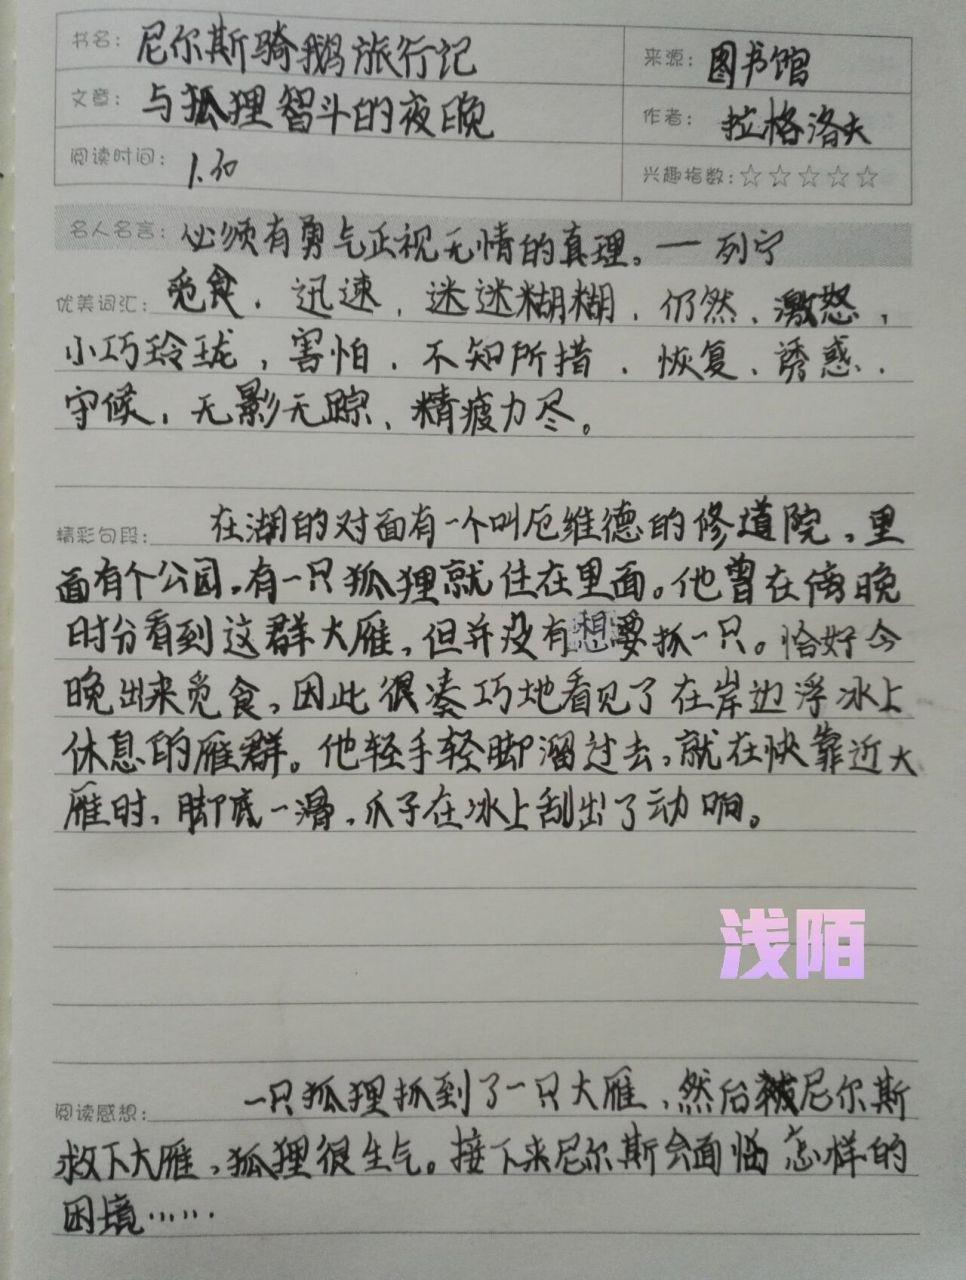 书名： 尼尔斯骑鹅旅行记 来源： 图书馆
文章： 与狐狸智斗的夜晚 作者： 拉格洛夫
阅读时间： 1.30 兴趣指数：☆☆☆☆☆
名人名言： 必须有勇气正视无情的真理。— 列宁
优美词汇： 觅食、迅速、迷迷糊糊、仍然、激怒、
小巧玲珑，害怕、不知所措、恢复、诱惑、
守候，无影无踪、精疲力尽。
精彩句段： 在湖的对面有一个叫厄维德的修道院，里
面有个公园。有一只狐狸就住在里面。他曾在傍晚
时分看到这群大雁，但并没有想要抓一只。恰好今
晚出来觅食，因此很凑巧地看见了在岸边浮冰上
休息的雁群。他轻手轻脚溜过去，就在快靠近大
雁时，脚底一滑，爪子在冰上刮出了动响。
浅陌
阅读感想： 一只狐狸抓到了一只大雁，然后被尼尔斯
救下大雁，狐狸很生气。接下来尼尔斯会面临怎样的
困境……